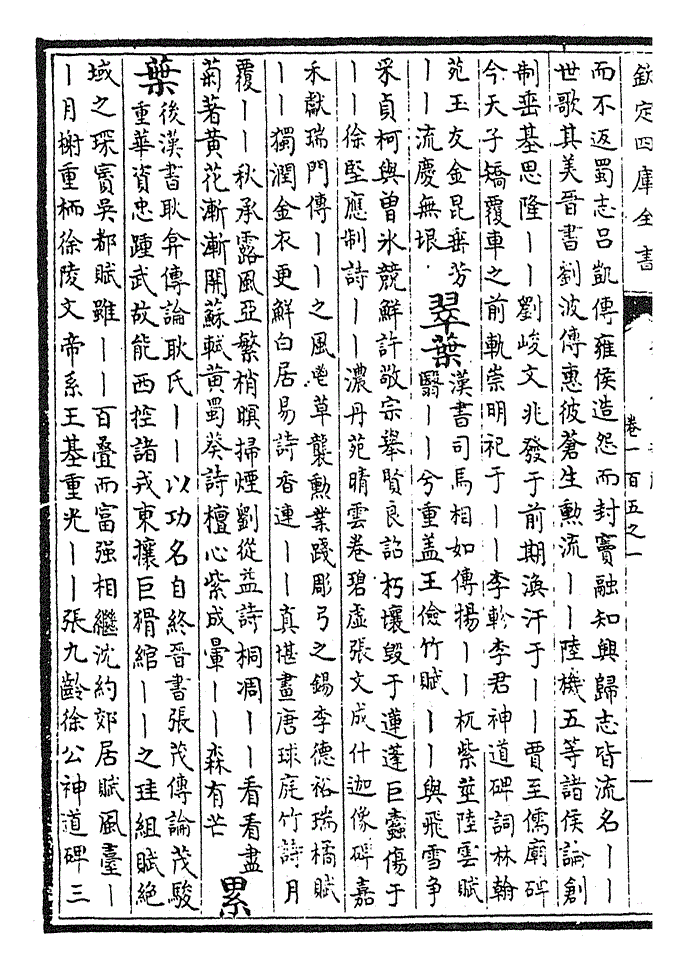 欽定四庫全書
卷一百五之一
而不返蜀志呂凱傳雍侯造怨而封竇融知興歸志皆流名丨丨
世歌其美晉書劉波傳惠彼蒼生勲流丨丨陸機五等諸侯論創
制垂基思隆丨丨劉峻文兆發于前期渙汗于丨丨賈至儒廟碑
今天子矯覆車之前軌崇明祀于丨丨李軫李君神道碑詞林翰
苑玉友金昆垂芳
丨丨流慶無垠
翠葉
漢書司馬相如傳揚丨丨杌紫莖陸雲賦
翳丨丨兮重盖王儉竹賦丨丨與飛雪争
采貞柯與曽氷競鮮許敬宗舉賢良詔朽壤毀于蓮蓬巨蠹傷于
丨丨徐堅應制詩丨丨濃丹苑晴雲卷碧虛張文成什迦像碑嘉
禾獻瑞門傳丨丨之風草襲勲業踐彫弓之錫李德裕瑞橘賦
丨丨獨潤金衣更鮮白居易詩香連丨丨真堪畫唐球庭竹詩月
覆丨丨秋承露風亞繁梢暝掃煙劉從益詩桐凋丨丨看看盡
菊著黄花漸漸開蘇軾黄蜀葵詩檀心紫成暈丨丨森有芒
累
葉
後漢書耿弇傳論耿氏丨丨以功名自終晉書張茂傳論茂駿
重華資忠踵武故能西控諸戎東攘巨猾綰丨丨之珪組賦絶
域之琛寳吳都賦雖丨丨百疊而富强相繼沈約郊居賦風臺丨
丨月榭重栭徐陵文帝系王基重光丨丨張九齡徐公神道碑三